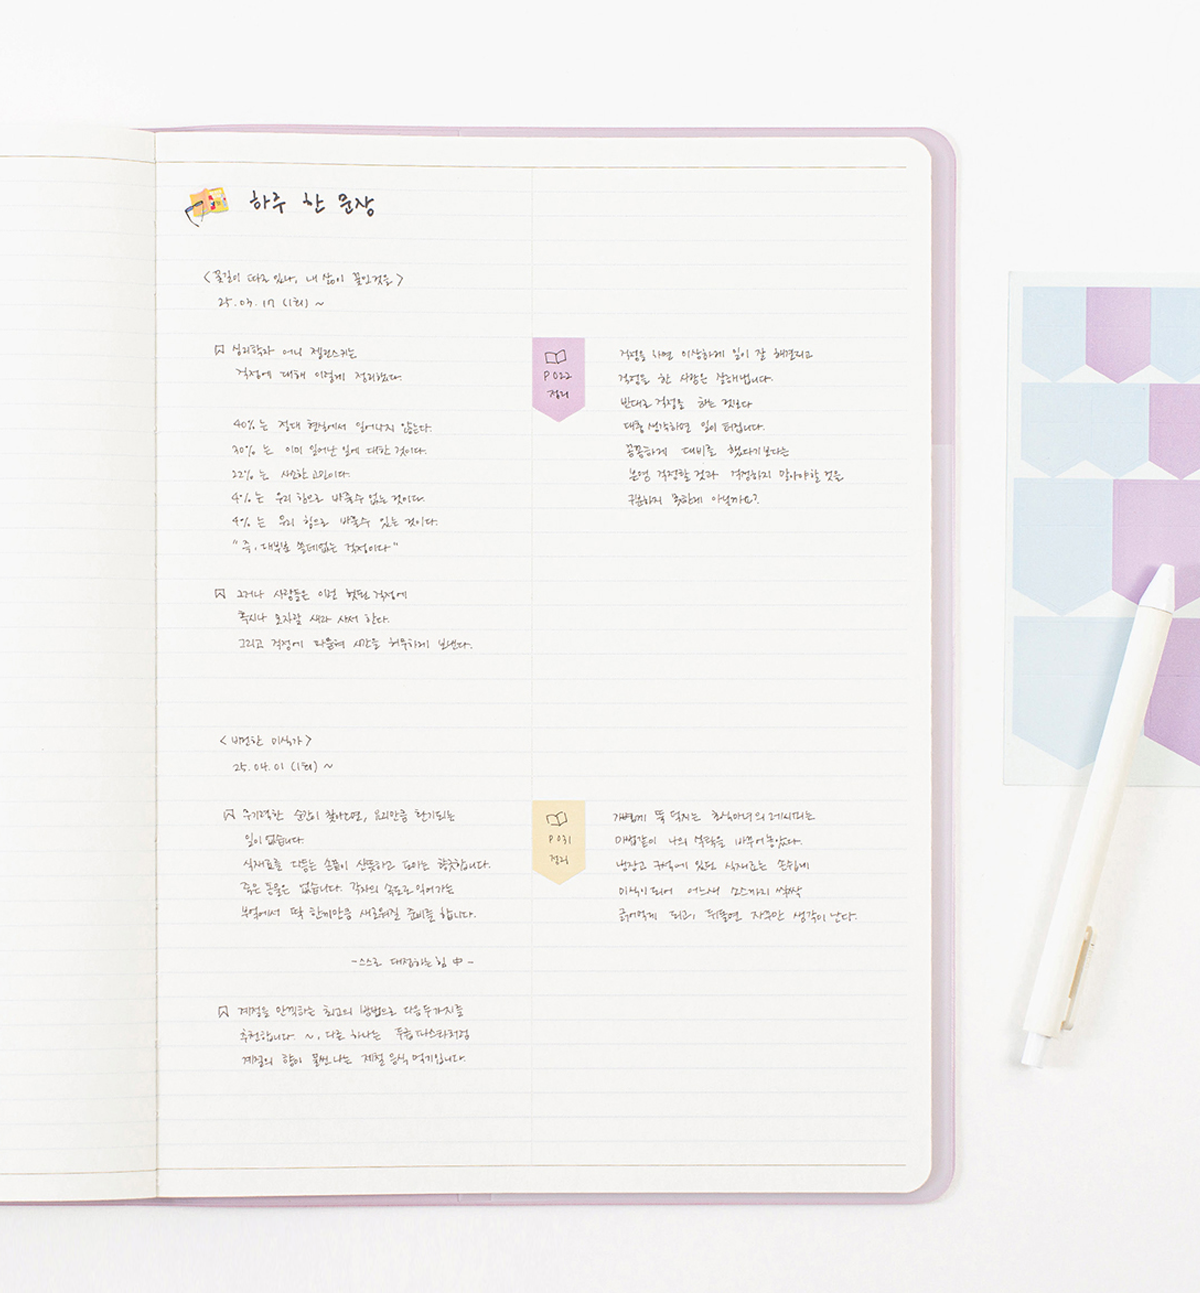 하루 한 문장
<꽃길이 따로 있나, 내 삶이 꽃인것을>
25.03.17 (1회) ~
심리학자 어니 젤린스키는
걱정에 대해 이렇게 정리했다.
40%는 절대 현실에서 일어나지 않는다.
30%는 이미 일어난 일에 대한 것이다.
22%는 사소한 고민이다.
4%는 우리 힘으로 바꿀수 없는 것이다.
4%는 우리 힘으로 바꿀수 있는 것이다.
"즉, 대부분 쓸데없는 걱정이다"
그러나 사람들은 이런 헛된 걱정에
혹시나 모자랄 새라 사서 한다.
그리고 걱정에 파묻혀 시간을 허무하게 보낸다.
P 022
정리
걱정을 하면 이상하게 일이 잘 해결되고
걱정을 한 사람은 잘해냅니다.
반대로 걱정을 하는 것보다
대충 생각하면 일이 터집니다.
꼼꼼하게 대비를 했다기보다는
분명 걱정할 것과 걱정하지 말아야할 것을
구분하지 못한게 아닐까요?
<비건한 미식가>
25.04.01 (1회) ~
무기력한 순간이 찾아오면, 요리만큼 환기되는
일이 없습니다.
식재료를 다듬는 손끝이 산뜻하고 도마는 향긋합니다.
죽은 동물은 없습니다. 각자의 속도로 익어가는
부엌에서 딱 한끼만큼 새로워질 준비를 합니다.
-스스로 대접하는 힘 中-
계절을 만끽하는 최고의 방법으로 다음 두가지를
추천합니다. ~, 다른 하나는
계절의 향이 물씬 나는 제철 음식 먹기입니다.
P 031
정리
가볍게 뚝 덕지는 초식마녀의 레시피는
마법같이 나의 식탁을 바꾸어놓았다.
냉장고 구석에 있던 식재료는 손쉽게
미식이 되어 어느새 소스까지 싹싹
긁어먹게 되고, 뒤돌면 자꾸만 생각이 난다.